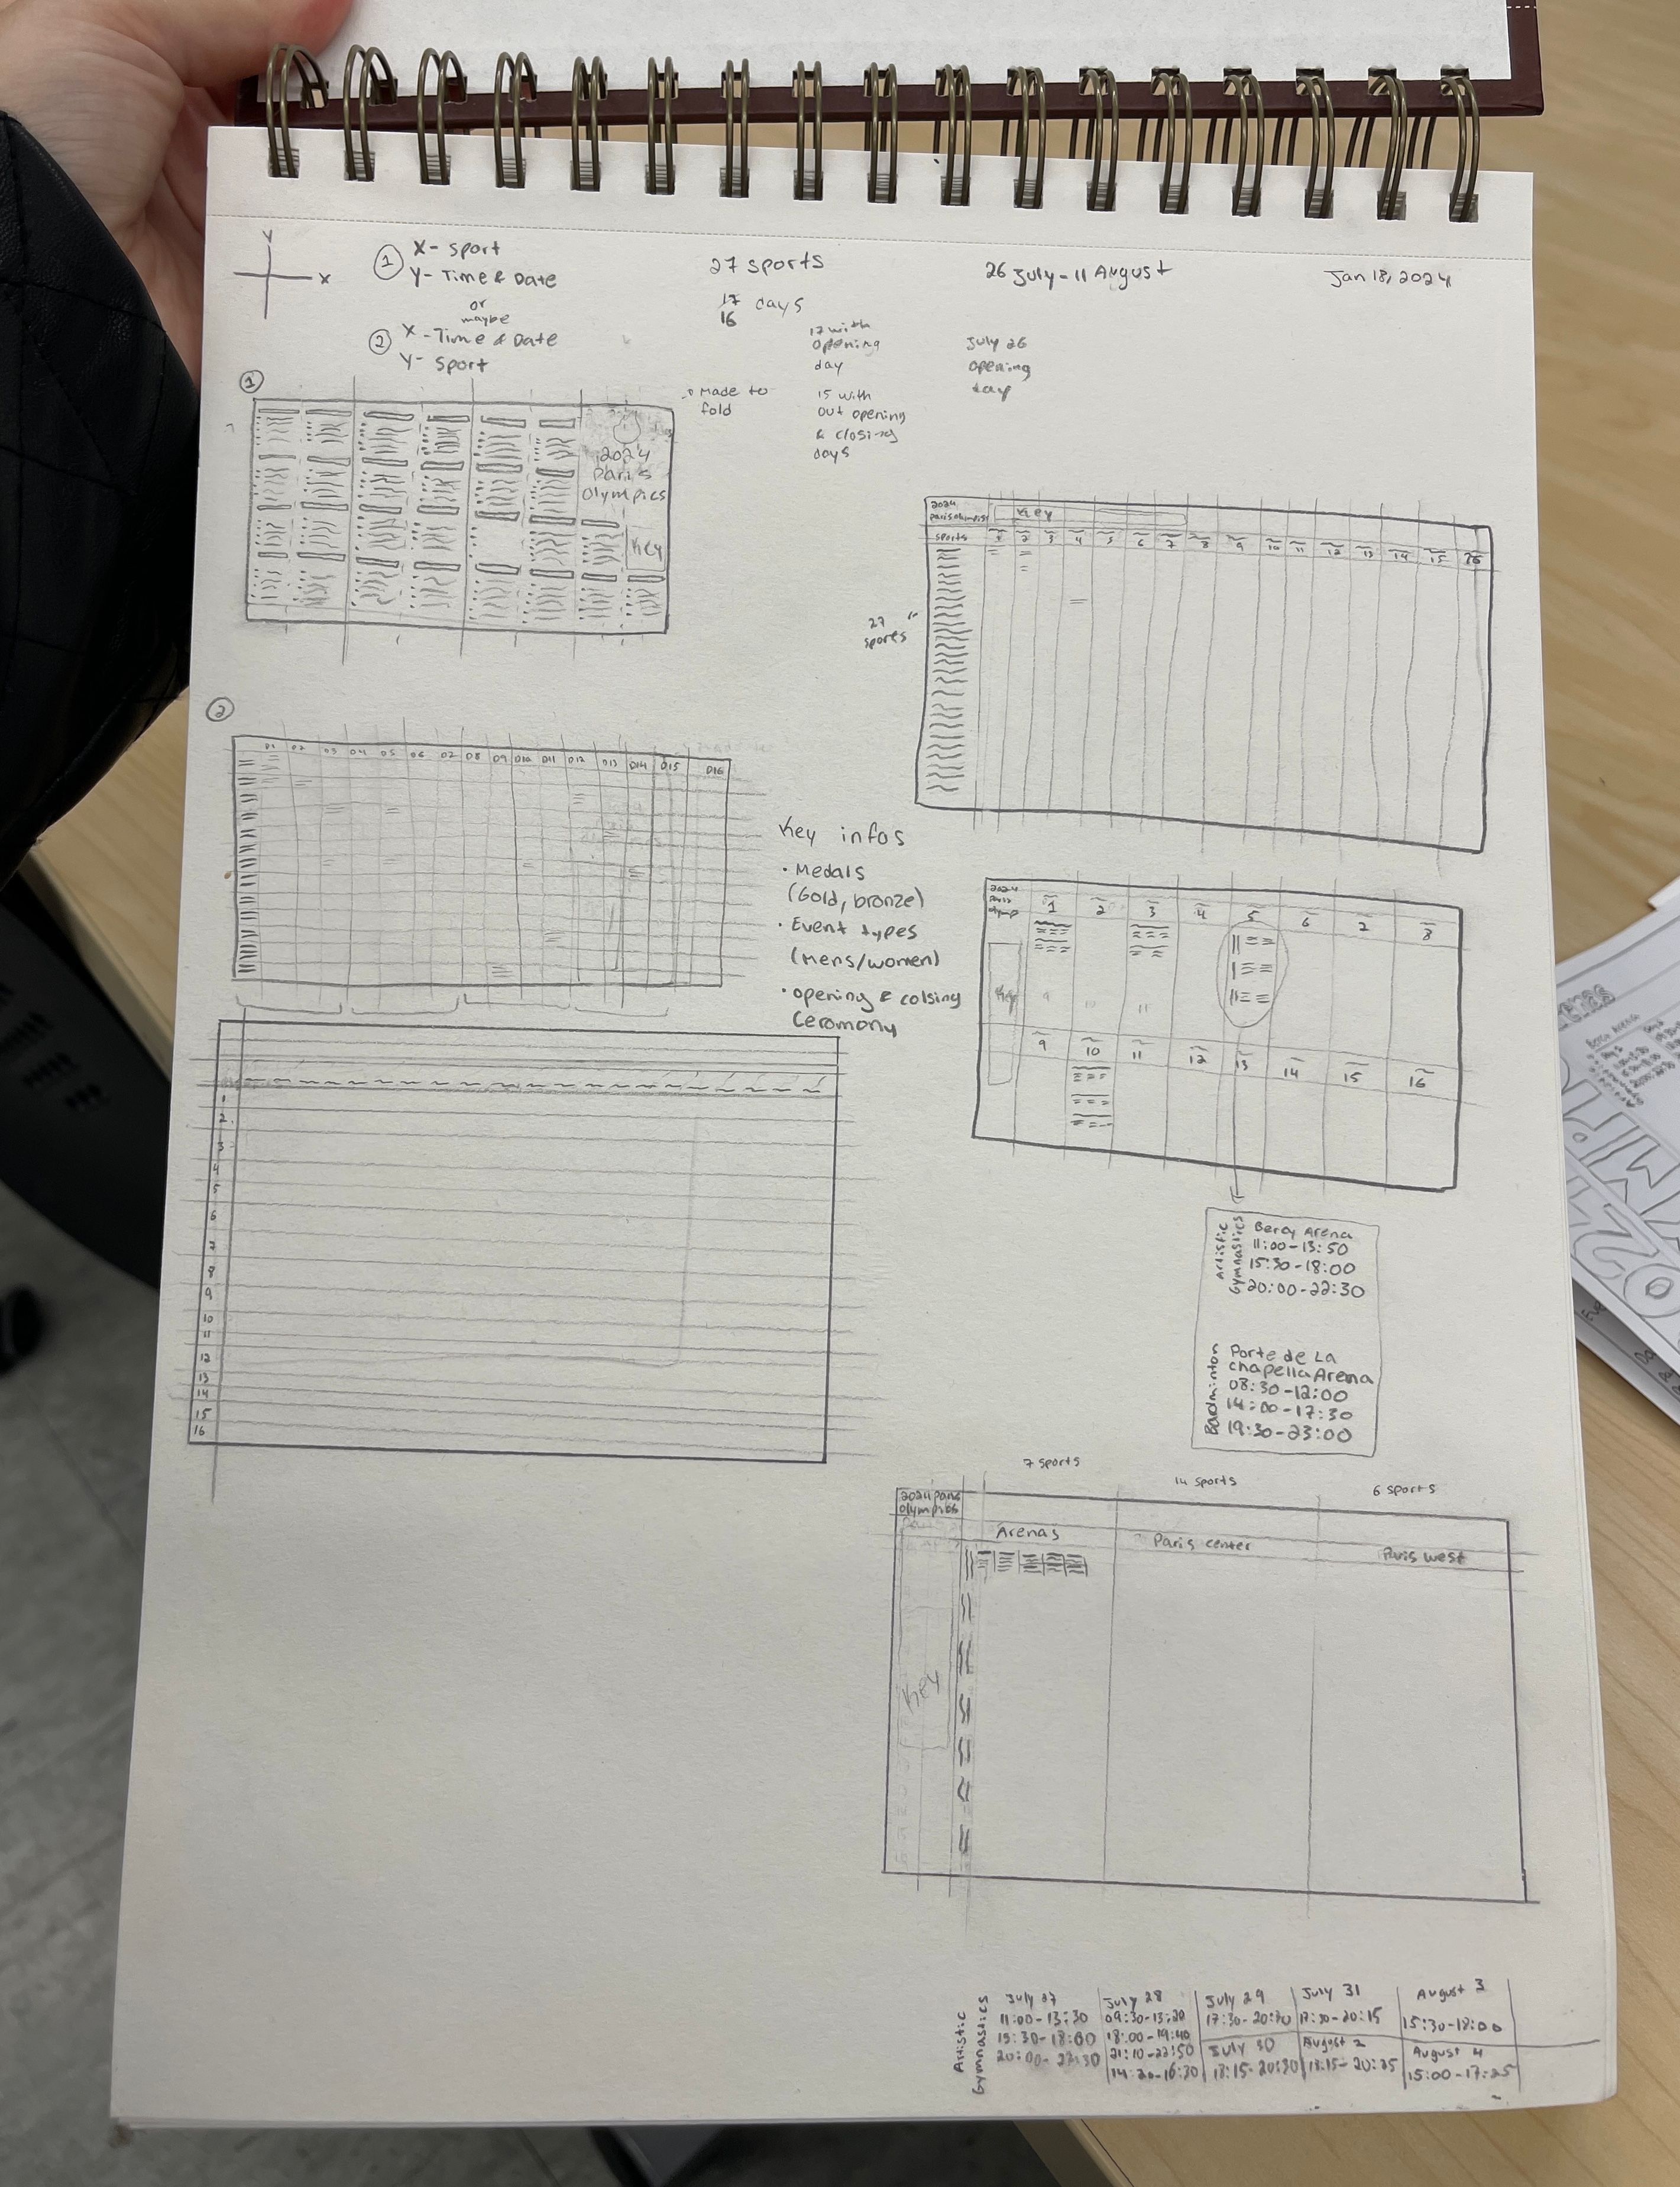 Y
X
① X- Sport
Y- Time & Date
or
maybe
② X -Time & Date
Y- Sport
27 sports
17 days
16
17 with
opening
day
15 with
out opening
& closing
days
Made to
fold
26 July - 11 August
July 26
opening
day
Jan 18, 2024
①
2024
Paris
Olympics
Key
2024
paris olympics
Key
sports
1 2 3 4 5 6 7 8 9 10 11 12 13 14 15 16
27
spores
②
D1 D2 D3 D4 D5 D6 D7 D8 D9 D10 D11 D12 D13 D14 D15 D16
Key infos
• Medals
(Gold, bronze)
• Event types
(Mens/women)
• opening & colsing
Ceromony
2024
paris
olymp
Key
1 2 3 4 5 6 7 8
9 10 11
9 10 11 12 13 14 15 16
1
2
3
4
5
6
7
8
9
10
11
12
13
14
15
16
Artistic
Gymnastics
Bercy Arena
11:00-13:50
15:30-18:00
20:00-22:30
Badminton
Porte de La
Chapella Arena
08:30-12:00
14:00-17:30
19:30-23:00
7 sports
14 sports
6 sports
2024 paris
olympics
Arenas
Paris center
Paris west
Key
Artistic
Gymnastics
July 27
11:00-13:30
15:30-18:00
20:00-22:30
July 28
09:30-13:20
18:00-19:40
21:10-22:50
14:20-16:30
July 29
17:30-20:30
July 30
18:15-20:30
July 31
17:30-20:15
August 2
18:15-20:25
August 3
15:30-18:00
August 4
15:00-17:25